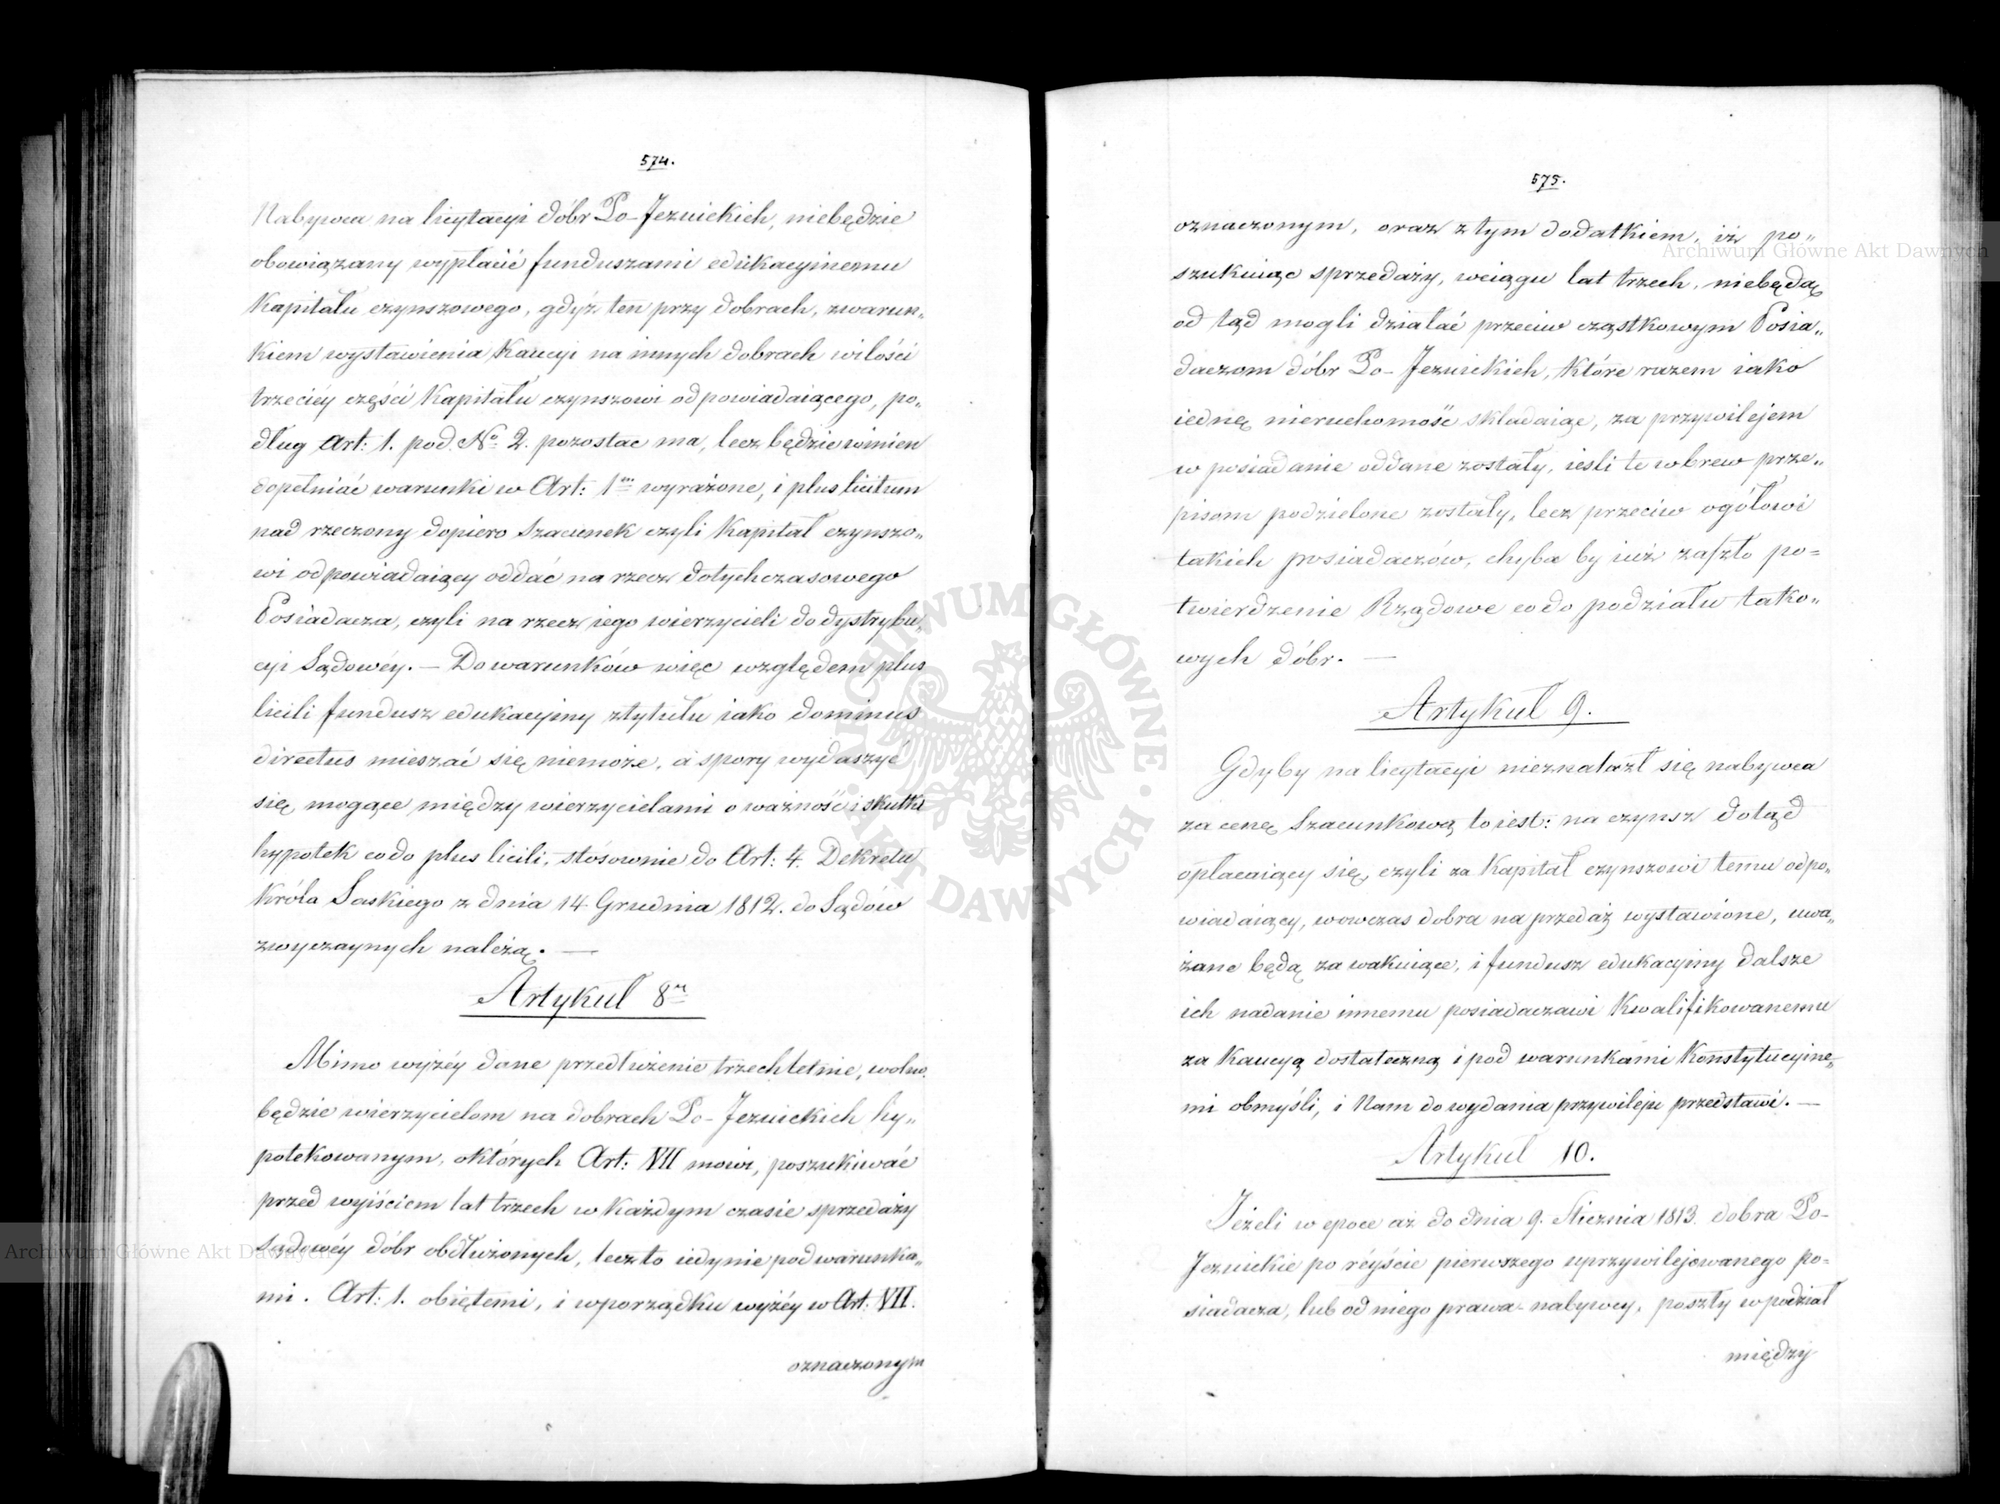 574.
Nabywca na licytacyi dóbr Po-Jezuickich, niebędzie
obowiązany wypłacić funduszami edukacyinemu
Kapitału czynszowego, gdyż ten przy dobrach, zwarun„
kiem wystawienia Kaucyi na innych dobrach wilości
trzeciéy części Kapitału czynszowi odpowiadaiącego, po„
dług Art: 1. pod No 2. pozostac ma, lecz będzie winien
dopełniać warunki w Art: 1m wyrażone, i plus licitum
nad rzeczony dopiero Szacunek czyli Kapitał czynszo„
wi odpowiadaiący oddać na rzecz dotychczasowego
Posiadacza, czyli na rzecz iego wierzycieli do dystrybu„
cyi Sądowéy. — Do warunków więc względem plus
licili fundusz edukacyiny ztytułu iako dominus
directus mieszać się niemoże, a spory wydaszyć
się mogące między wierzycielami o ważność i skutki
hypotek codo plus licili, stósownie do Art: 4. Dekretu
Króla Saskiego z dnia 14 Grudnia 1812. do Sądów
zwyczaynych należą. —
Artykuł 8y
Mimo wyżéy dane przedłużenie trzechletnie, wolno
będzie wierzycielom na dobrach Po-Jezuickich hy„
potekowanym, októrych Art: VII mowi, poszukiwać
przed wyiściem lat trzech w Każdym czasie sprzedaży
Sądowéy dóbr obdłużonych, lecz to iedynie pod warunka„
mi. Art: 1. obiętemi, i wporządku wyżéy w Art: VII.
oznaczonym
575.
oznaczonym, oraz ztym dodatkiem, iż po„
szukuiąc sprzedaży, wciągu lat trzech, niebędą
od tąd mogli działać przeciw cząstkowym Posia„
daczom dóbr Po-Jezuickich, które razem iako
iednę nieruchomość składaiąc, za przywilejem
w posiadanie oddane zostały, iesli te wbrew prze„
pisom podzielone zostały, lecz przeciw ogółowi
takich posiadaczów, chyba by iuż zaszło po=
twierdzenie Rządowe codo podziału tako„
wych dóbr. —
Artykuł 9.
Gdyby na licytacyi nieznalazł się nabywca
za cenę Szacunkową to iest: na czynsz dotąd
opłacaiący się, czyli za Kapitał czynszowi temu odpo„
wiadaiący, wowczas dobra na przedaż wystawione, uwa„
żane będą za wakuiące, i fundusz edukacyiny dalsze
ich nadanie innemu posiadaczowi Kwalifikowanemu
za Kaucyą dostateczną i pod warunkami Konstytucyine„
mi obmyśli, i Nam do wydania przywileju przedstawi. —
Artykuł 10.
Jeżeli w epoce aż do dnia 9. Stycznia 1813. dobra Po-
Jezuickie po réyście pierwszego uprzywilejowanego po-
siadacza, lub od niego prawa-nabywcy, poszły w podział
między
Archiwum Główne Akt Dawnych
Archiwum Główne Akt Dawnych
ARCHIWUM GŁÓWNE · AKT DAWNYCH ·